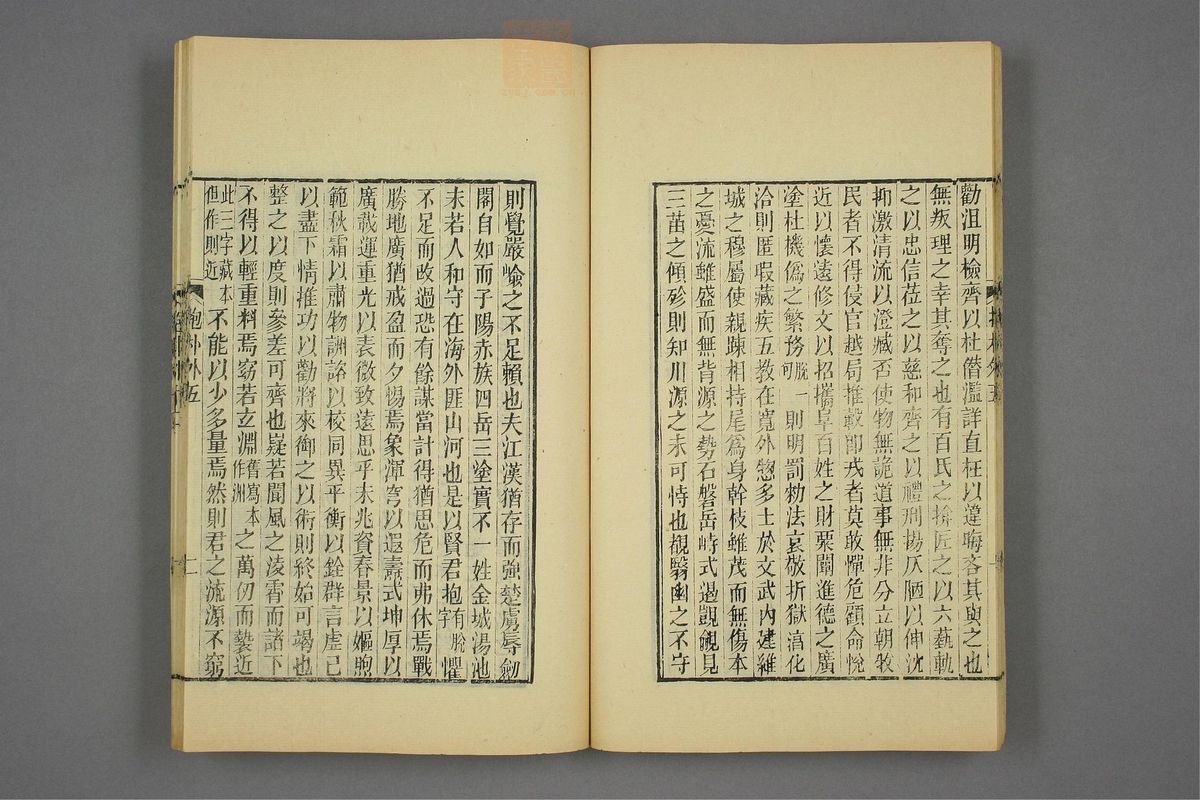 勸沮明檢齊以杜僭濫詳直枉以違晦吝其與之也
無叛理之幸其奪之也有百氏之掩匠之以六藝軌
之以忠信莅之以慈和齊之以禮刑揚仄陋以伸沈
抑激清流以澄臧否使物無詭道事無非分立朝牧
民者不得侵官越局推轂卽戎者莫敢憚危顧命悅
近以懷遠修文以招攜阜百姓之財粟闡進德之廣
塗杜機僞之繁務脫一可則明罰勑法哀敬折獄淯化
洽則匿瑕藏疾五教在寬外惣多士於文武內建維
城之穆屬使親疎相持尾爲身幹枝雖茂而無傷本
之憂流雖盛而無背源之勢石磐岳峙式遏覬覦見
三苗之傾殄則知川源之未可恃也覩翳幽之不守
則覺嚴嶮之不足賴也夫江漢猶存而強楚虜辱劒
閣自如而子陽赤族四岳三塗實不一姓金城湯池
未若人和守在海外匪山河也是以賢君抱有脫字懼
不足而改過恐有餘謀當計得猶思危而弗休焉戰
勝地廣猶戒盈而夕惕焉象渾穹以遐燾式坤厚以
廣載運重光以表微致遠思乎未兆資春景以嫗煦
範秋霜以肅物詶諮以校同異平衡以銓群言虛己
以盡下情推功以勸將來御之以術則終始可竭也
整之以度則參差可齊也嶷若閬風之淩霄而諸下
不得以輕重料焉窈若玄淵舊寫本作洲之萬仞而藝近
此三字藏本但作則近不能以少多量焉然則君之流源不窮
抱朴外五
十一